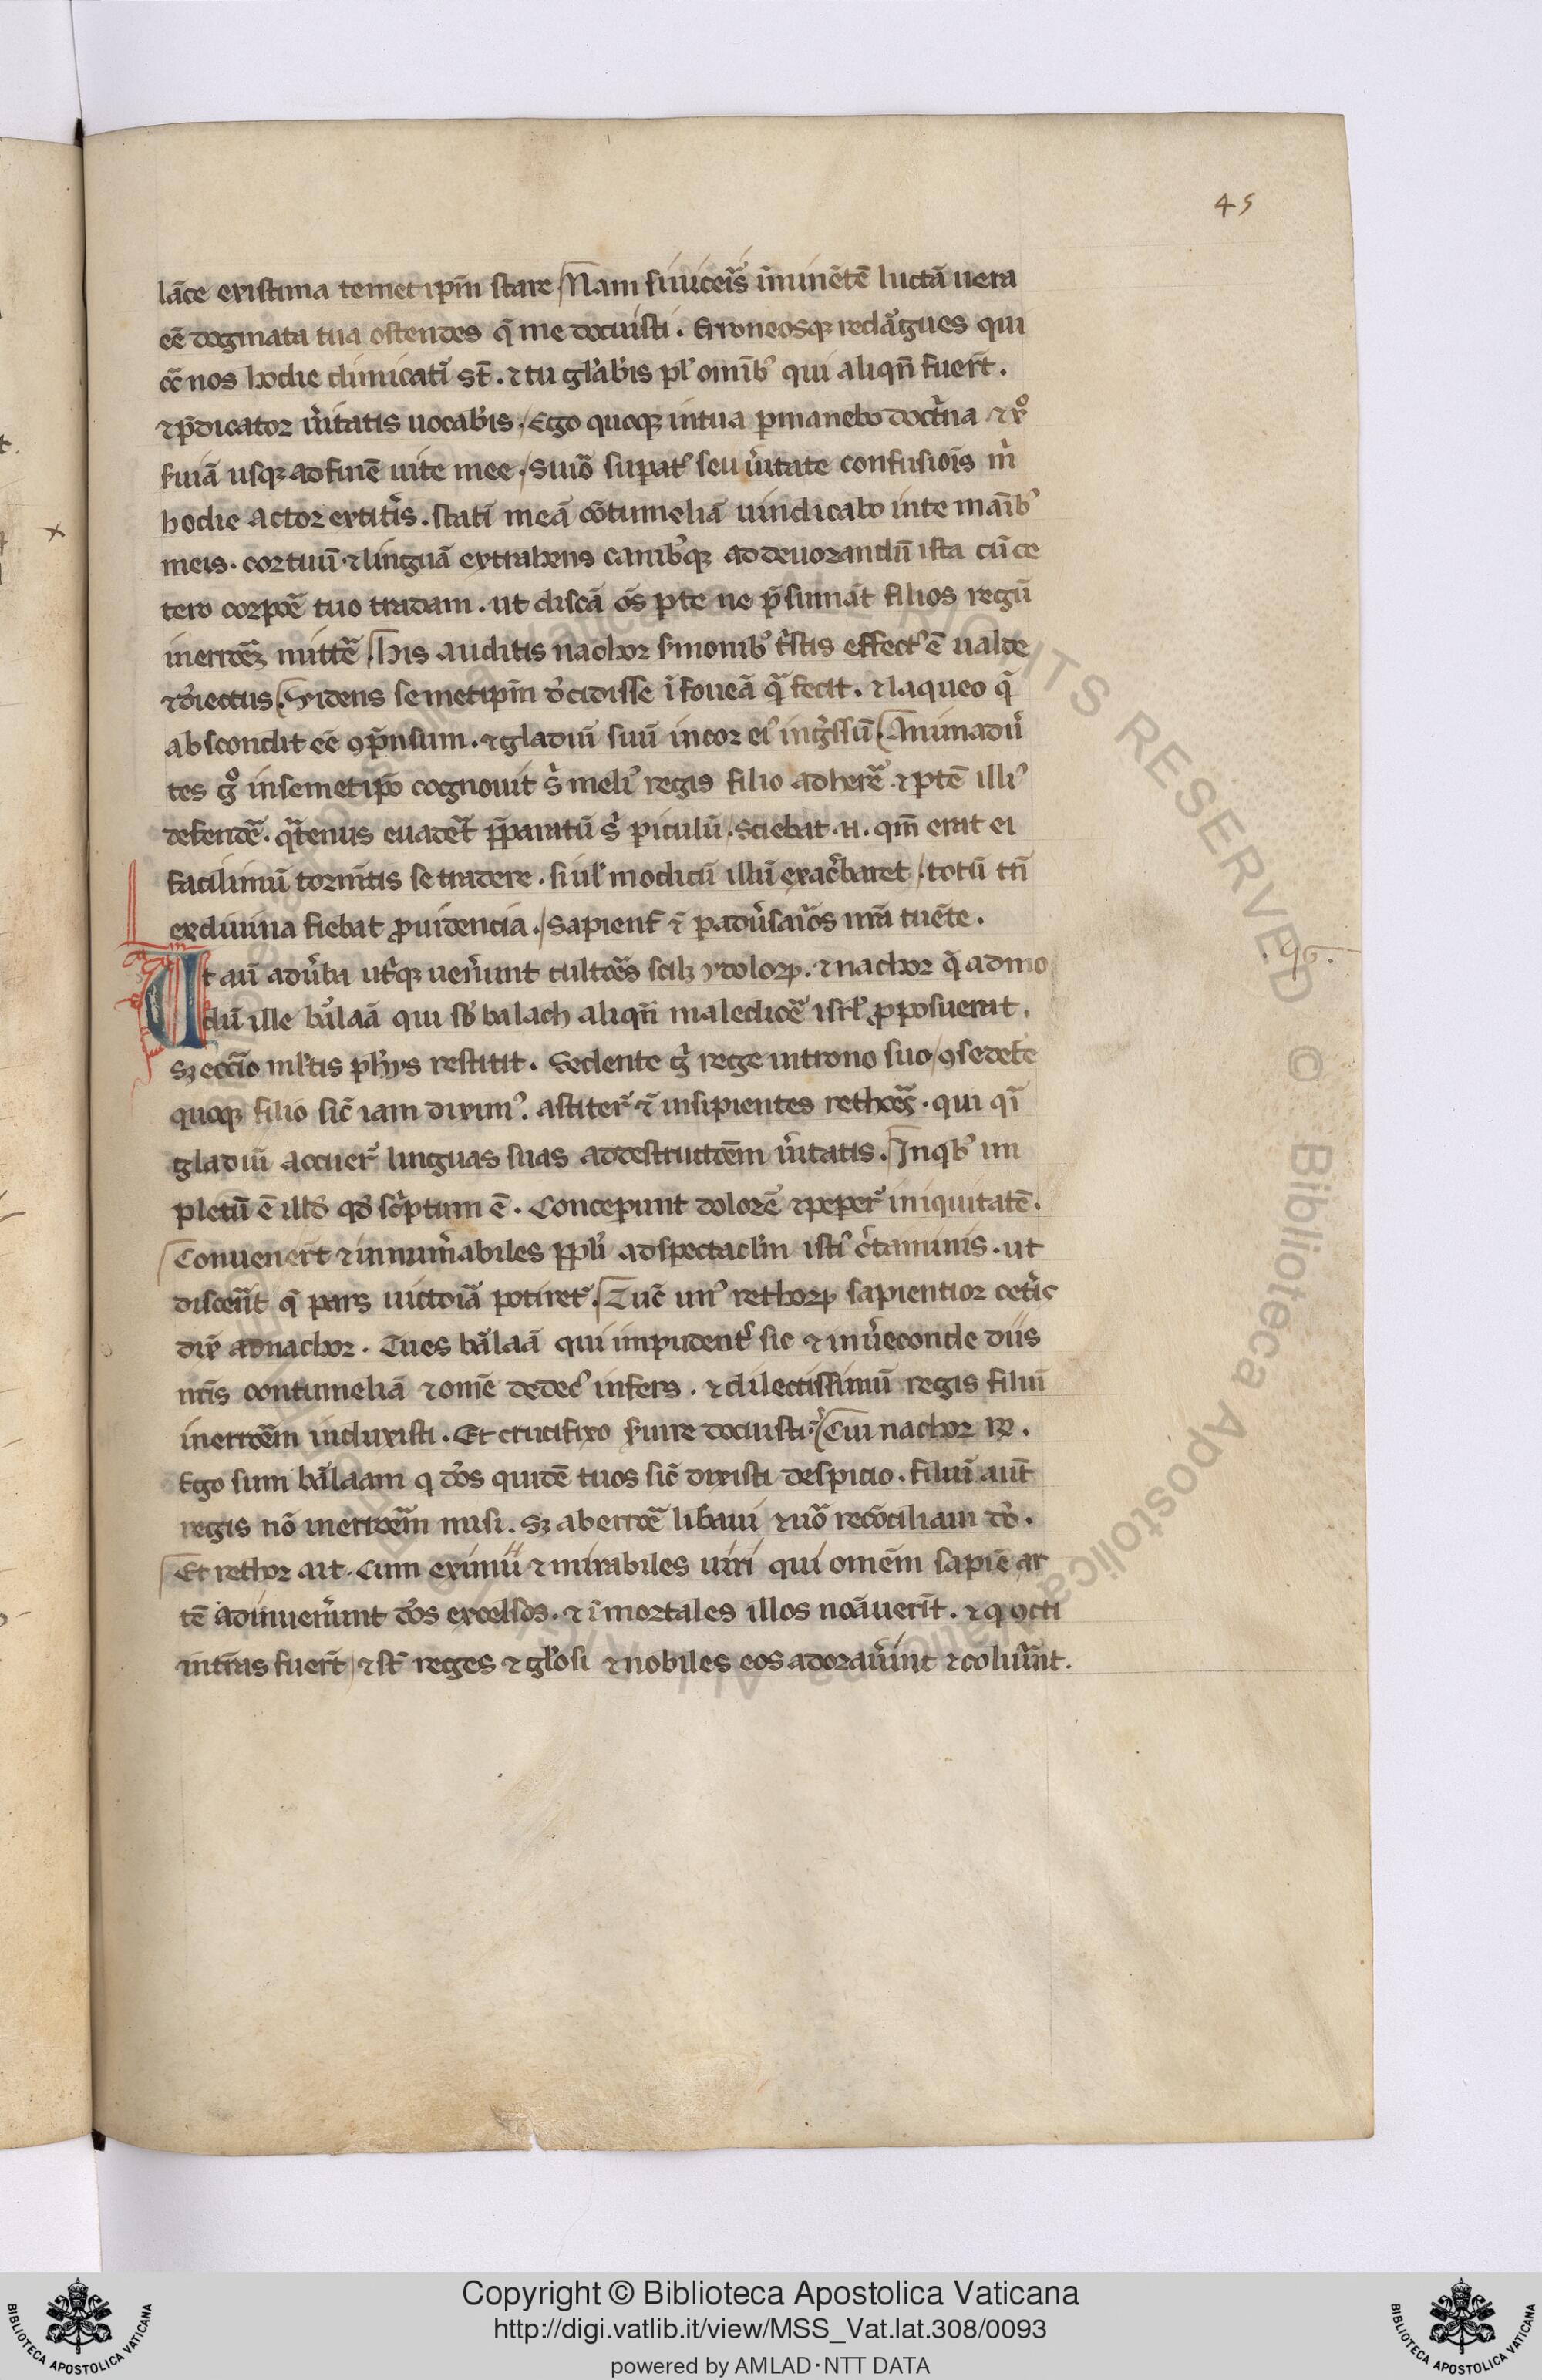 45
lãce existima temet ip̃m stare Nam si uiceıs̃ ĩminẽtẽ luctã uera
eẽ dogmata tua ostendes q̃ me docuisti. Erroneosqȝ redãgues qui
cc̃ nos hodie dimicatĩ st̃. ⁊ tu gl'ab'is pl' omĩb' qui aliqñ fuer̃t.
⁊ p̃dicator ũitatis uocab'is. Ego quoqȝ in tua p̃manebo doct̃na ⁊ x̃o
s̃uiã usqȝ ad finẽ uite mee. Si uõ sup̃at' seu ũitate confusiõis m̃
hodie actor extit̃is. statĩ meã cõtumeliã uindicabo in te mañib'
meis. cor tuũ ⁊ linguã extrahens canib'qȝ ad deuorandũ ista cũ ce
tero corpoẽ tuo tradam. ut discã oẽs p te ne p̃sumãt filios regũ
in erroẽȝ mittẽ. His auditis nachor s̃monib' t̃stis effect' ẽ ualde
⁊ deiectus. Videns semetip̃m decidisse ĩ foueã q̃ fecit. ⁊ laqueo q̃
abscondit eẽ ꝯp̃nsum. ⁊ gladiũ suũ in cor ei' ing̃ssũ. Animadũ
tes g° in semetip̃o cognouit s̃ meli' regis filio adherẽ ⁊ p̃tẽ illi'
defendẽ. q̃tenus euadẽt p̃paratũ s̃ piculũ. Sciebat .n. qm̃ erat ei
facilimũ tormt̃is se tradere. si ul' modicũ illũ exac̃baret. totũ tñ
ex diuina fiebat ꝓuidencia. Sapient̃ ⁊ p adũsaĩos nr̃a tuẽte.
.96.
Vt aũ ad ũba ut̃qȝ ueñunt cultoẽs scilȝ ydoloꝝ. ⁊ nachor q̃ admo
dũ ille bãlaã qui sb' balach aliqñ maledicẽ isrl' ꝓposuerat.
Sȝ ecc̃io ml'tis phys restitit. Sedente g̃ rege in trono suo ꝯsedẽte
quoqȝ filio sic̃ iam dixim'. astiter̃ ⁊ insipientes rethoẽs. qui q̃i
gladiũ acuer̃ linguas suas ad destructõẽm ũitatis. In qb' im
pletũ ẽ illd' qd' sc̃ptum ẽ. Concepunt dolorẽ ⁊ peper̃ iniquitatẽ.
Conuener̃t ⁊ innum̃abiles ppl'i ad spectacl'm isti' c̃taminis. ut
discẽnt q̃ pars uictoĩã potiret̃. Tũc un' rethoꝝ sapientior cet̃is
dix̃ ad nachor. Tu es bãlaã qui impudent̃ sic ⁊ inũeconde diis
nr̃is contumeliã ⁊ omẽ dedec' infers. ⁊ dilectissimũ regis filiũ
in erroẽm induxisti. Et crucifixo s̃uire docuisti. Cui nachor ꝶ.
Ego sum bãlaam q dẽos quidẽ tuos sic̃ dixisti despicio. Filiũ aut̃
regis nõ in erroẽm misi. sȝ ab erroẽ lib̃aui ⁊ uõ recõciliaui deo.
Et rethor ait. Cum eximii ⁊ mirabiles uiri qui omẽm sapiẽ ar
tẽ adinueñunt dẽos excelsos. ⁊ ĩmortales illos nõiauerĩt. ⁊ q ꝯcti
in tr̃as fuer̃t ⁊ st̃ reges ⁊ gl'osi ⁊ nobiles eos adorauẽint ⁊ coluẽint.
Copyright © Biblioteca Apostolica Vaticana
http://digi.vatlib.it/view/MSS_Vat.lat.308/0093
powered by AMLAD·NTT DATA
BIBLIOTECA APOSTOLICA VATICANA
BIBLIOTECA APOSTOLICA VATICANA